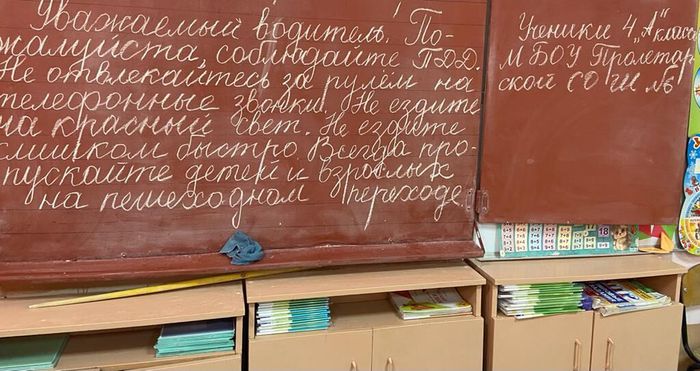 Уважаемый водитель. По-
жалуйста, соблюдайте ПДД.
Не отвлекайтесь за рулём на
телефонные звонки. Не ездите
на красный свет. Не ездите
слишком быстро. Всегда про-
пускайте детей и взрослых
на пешеходном переходе.
Ученики 4 „А" класса
МБОУ Пролетар
ской СОШ №